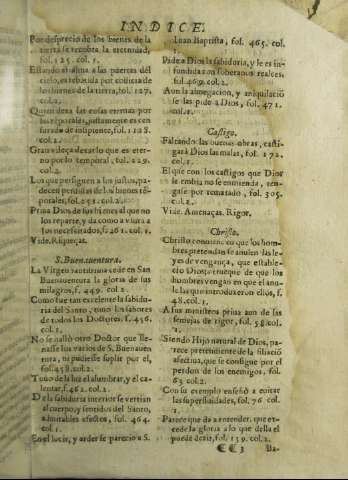 INDICE.
Por desprecio de los bienes de la
tierra se recobra la eternidad,
fol. 125. col. 1.
Estando el alma a las puertas del
cielo, es rebotida por codicia de
los bienes de la tierra, fol. 127.
col. 2.
Quien dexa las cosas eternas por
las temporales, justamente es cen
surado de insipiente, fol. 128.
col. 2.
Gran de que es eter-
no por lo temporal, fol. 229.
col. 2.
Los que persiguen a los justos, pa-
decen perdidas de los bienes tẽ-
porales, fol. 251. col. 2.
Priva Dios de sus bienes al que no
los reparte, y da como a viuir a
los necessitados, f. 261. col. 1.
Vide, Riquezas.
S. Buenauentura.
La Virgen santissima cede en San
Buenauentura la gloria de sus
milagros, f. 449. col. 2.
Como fue tan excelente la sabidu-
ria del Santo, tuuo los sabores
de todos los Doctores. f. 456.
col. 1.
No se halló otro Doctor que lle-
nasse los varios de S. Buenauen
tura, ni pudiesse suplir por el,
fol. 458. col. 2.
Tuuo de la luz el alumbrar, y el ca-
lentar, f. 462. col. 2.
De la sabiduria interior se vertian
al cuerpo, y sentidos del Santo,
admirables afectos, fol. 464.
col. 1.
En el lucir, y arder se parecio a S.
Iuan Baptista, fol. 465. col.
1.
Pide a Dios la sabiduria, y le es in-
fundida con soberanos realces,
fol. 469. col. 2.
Aun la abnegacion, y aniquilaciõ
se las pide a Dios, fol. 471.
col. 1.
Castigo.
Faltando las buenas obras, casti-
gará Dios las malas, fol. 172.
col. 1.
El que con los castigos que Dios
le embia no se enmienda, ten-
gale por rematado, fol. 305.
col. 2.
Vide. Amenaças. Rigor.
Christo.
Christo que los hom-
bres pretendan se anulen las le-
yes de vengança, que estable-
cio Dios, que de que los
hombres vengan en que el anu-
le las que introduxeron ellos, f.
48. col. 1.
A sus ministros priua aun de las
señales de rigor, fol. 58. col.
2.
Siendo Hijo natural de Dios, pa-
rece pretendiente de la filiacion
afectiua, que se consigue por el
perdon de los enemigos. fol.
63. col. 2.
Con su exemplo enseñó a euitar
las superfluidades, fol. 76. col.
1.
Parece que da a entender, que ex-
cede la gloria a lo que della el
puede dezir, fol. 139. col. 2.
¶¶ 3 Ba-